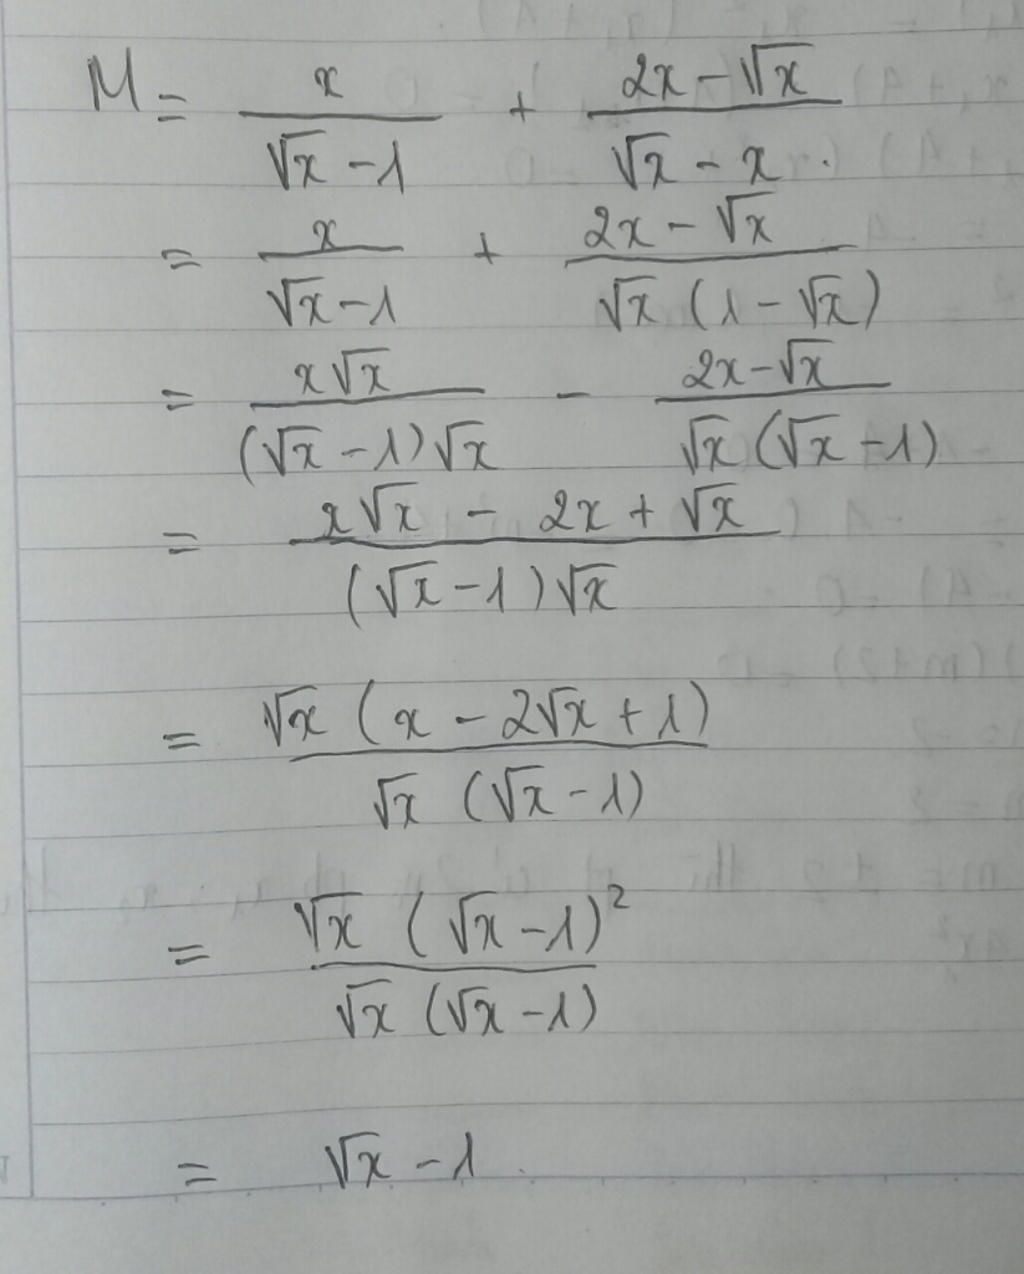 M = x/(√x - 1) + (2x - √x)/(√x - x).
= x/(√x - 1) + (2x - √x)/(√x (1 - √x))
= x√x/((√x - 1)√x) - (2x - √x)/(√x (√x - 1))
= (x√x - 2x + √x)/((√x - 1)√x)
= √x (x - 2√x + 1)/(√x (√x - 1))
= √x (√x - 1)²/(√x (√x - 1))
= √x - 1.